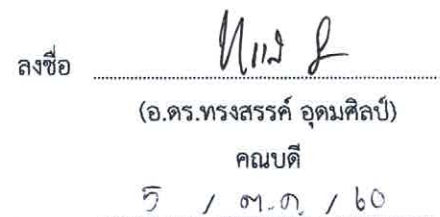 ลงชื่อ
(อ.ดร.ทรงสรรค์ อุดมศิลป์)
คณบดี
/ ต.ค. / 60